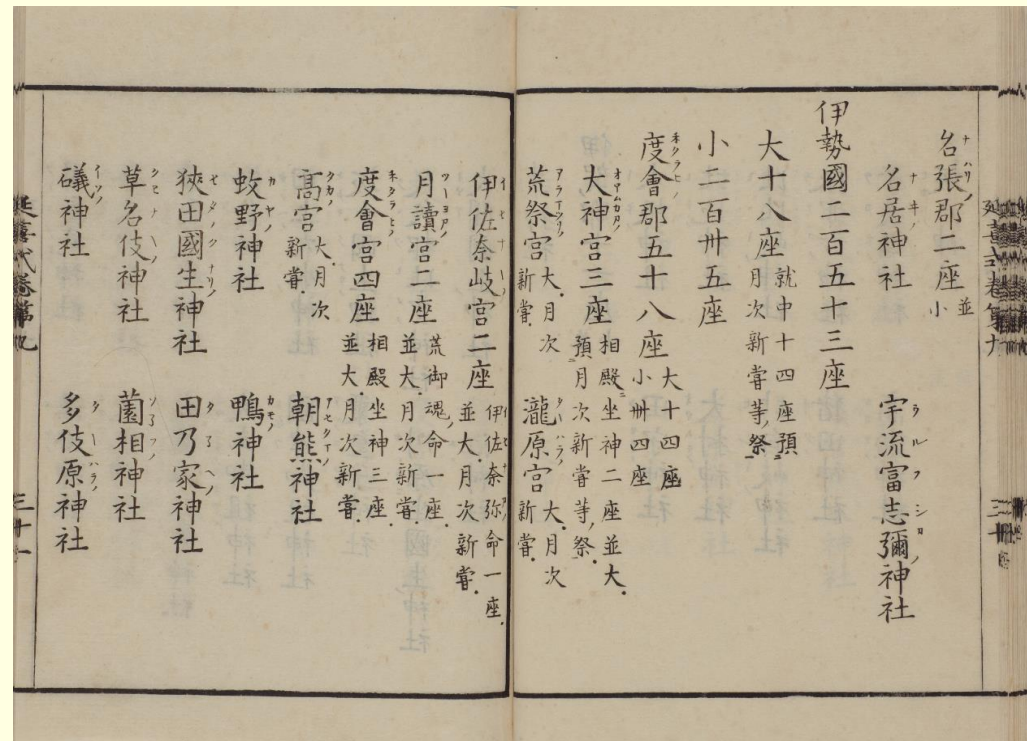 名張郡二座並小
名居神社 宇流富志彌神社
伊勢國二百五十三座
大十八座就中十四座預月次新嘗等祭
小二百卅五座
度會郡五十八座大十四座小卌四座
大神宮三座相殿坐神二座並大預月次新嘗等祭
荒祭宮大月次新嘗 瀧原宮大月次新嘗
伊佐奈岐宮二座伊佐奈弥命一座並大月次新嘗
月讀宮二座荒御魂命一座並大月次新嘗
度會宮四座相殿坐神三座並大月次新嘗
高宮大月次新嘗 朝熊神社
蚊野神社 鴨神社
狹田國生神社 田乃家神社
草名伎神社 薗相神社
礒神社 多伎原神社